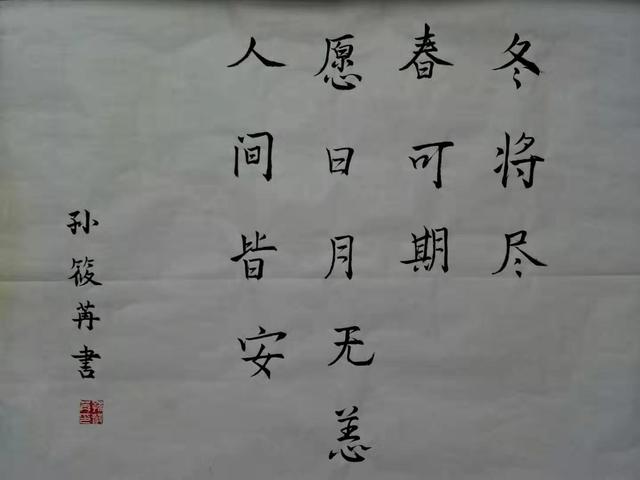 冬将尽
春可期
愿日月无恙
人间皆安
孙筱苒書